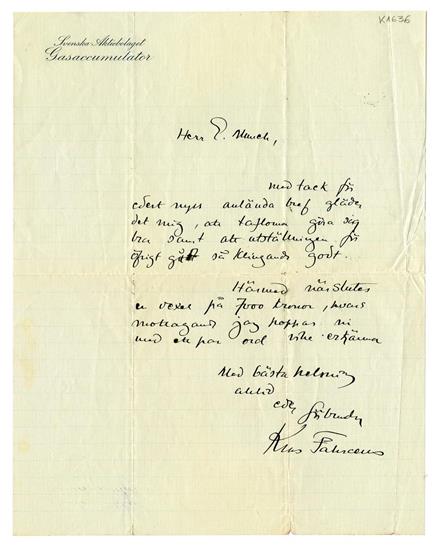 K1636
Svenska Aktiebolaget
Gasaccumulator
Herr E. Munch,
med tack för
edert nyss anlända bref gläder
det mig, att taflorna göra sig
bra samt att utställningen för
öfrigt gått så klingande godt.
Härmed närslutes
en vexel på 7000 kronor, hvars
mottagande jag hoppas ni
med ett par ord ville erkänna
Med bästa helsning
alltid
eder förbundne
Klas Fåhraeus